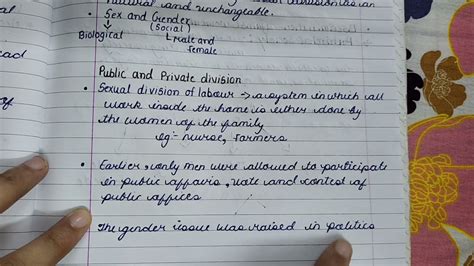 natural and unchangeable.
• Sex and Gender
↓ (Social)
Biological ↳ Male and
female
Public and Private division
• Sexual division of labour → a system in which all
work inside the home is either done by
the women of the family
eg:- nurse, farmers
• Earlier, only men were allowed to participate
in public affairs, vote and contest of
public offices
The gender issue was raised in politics